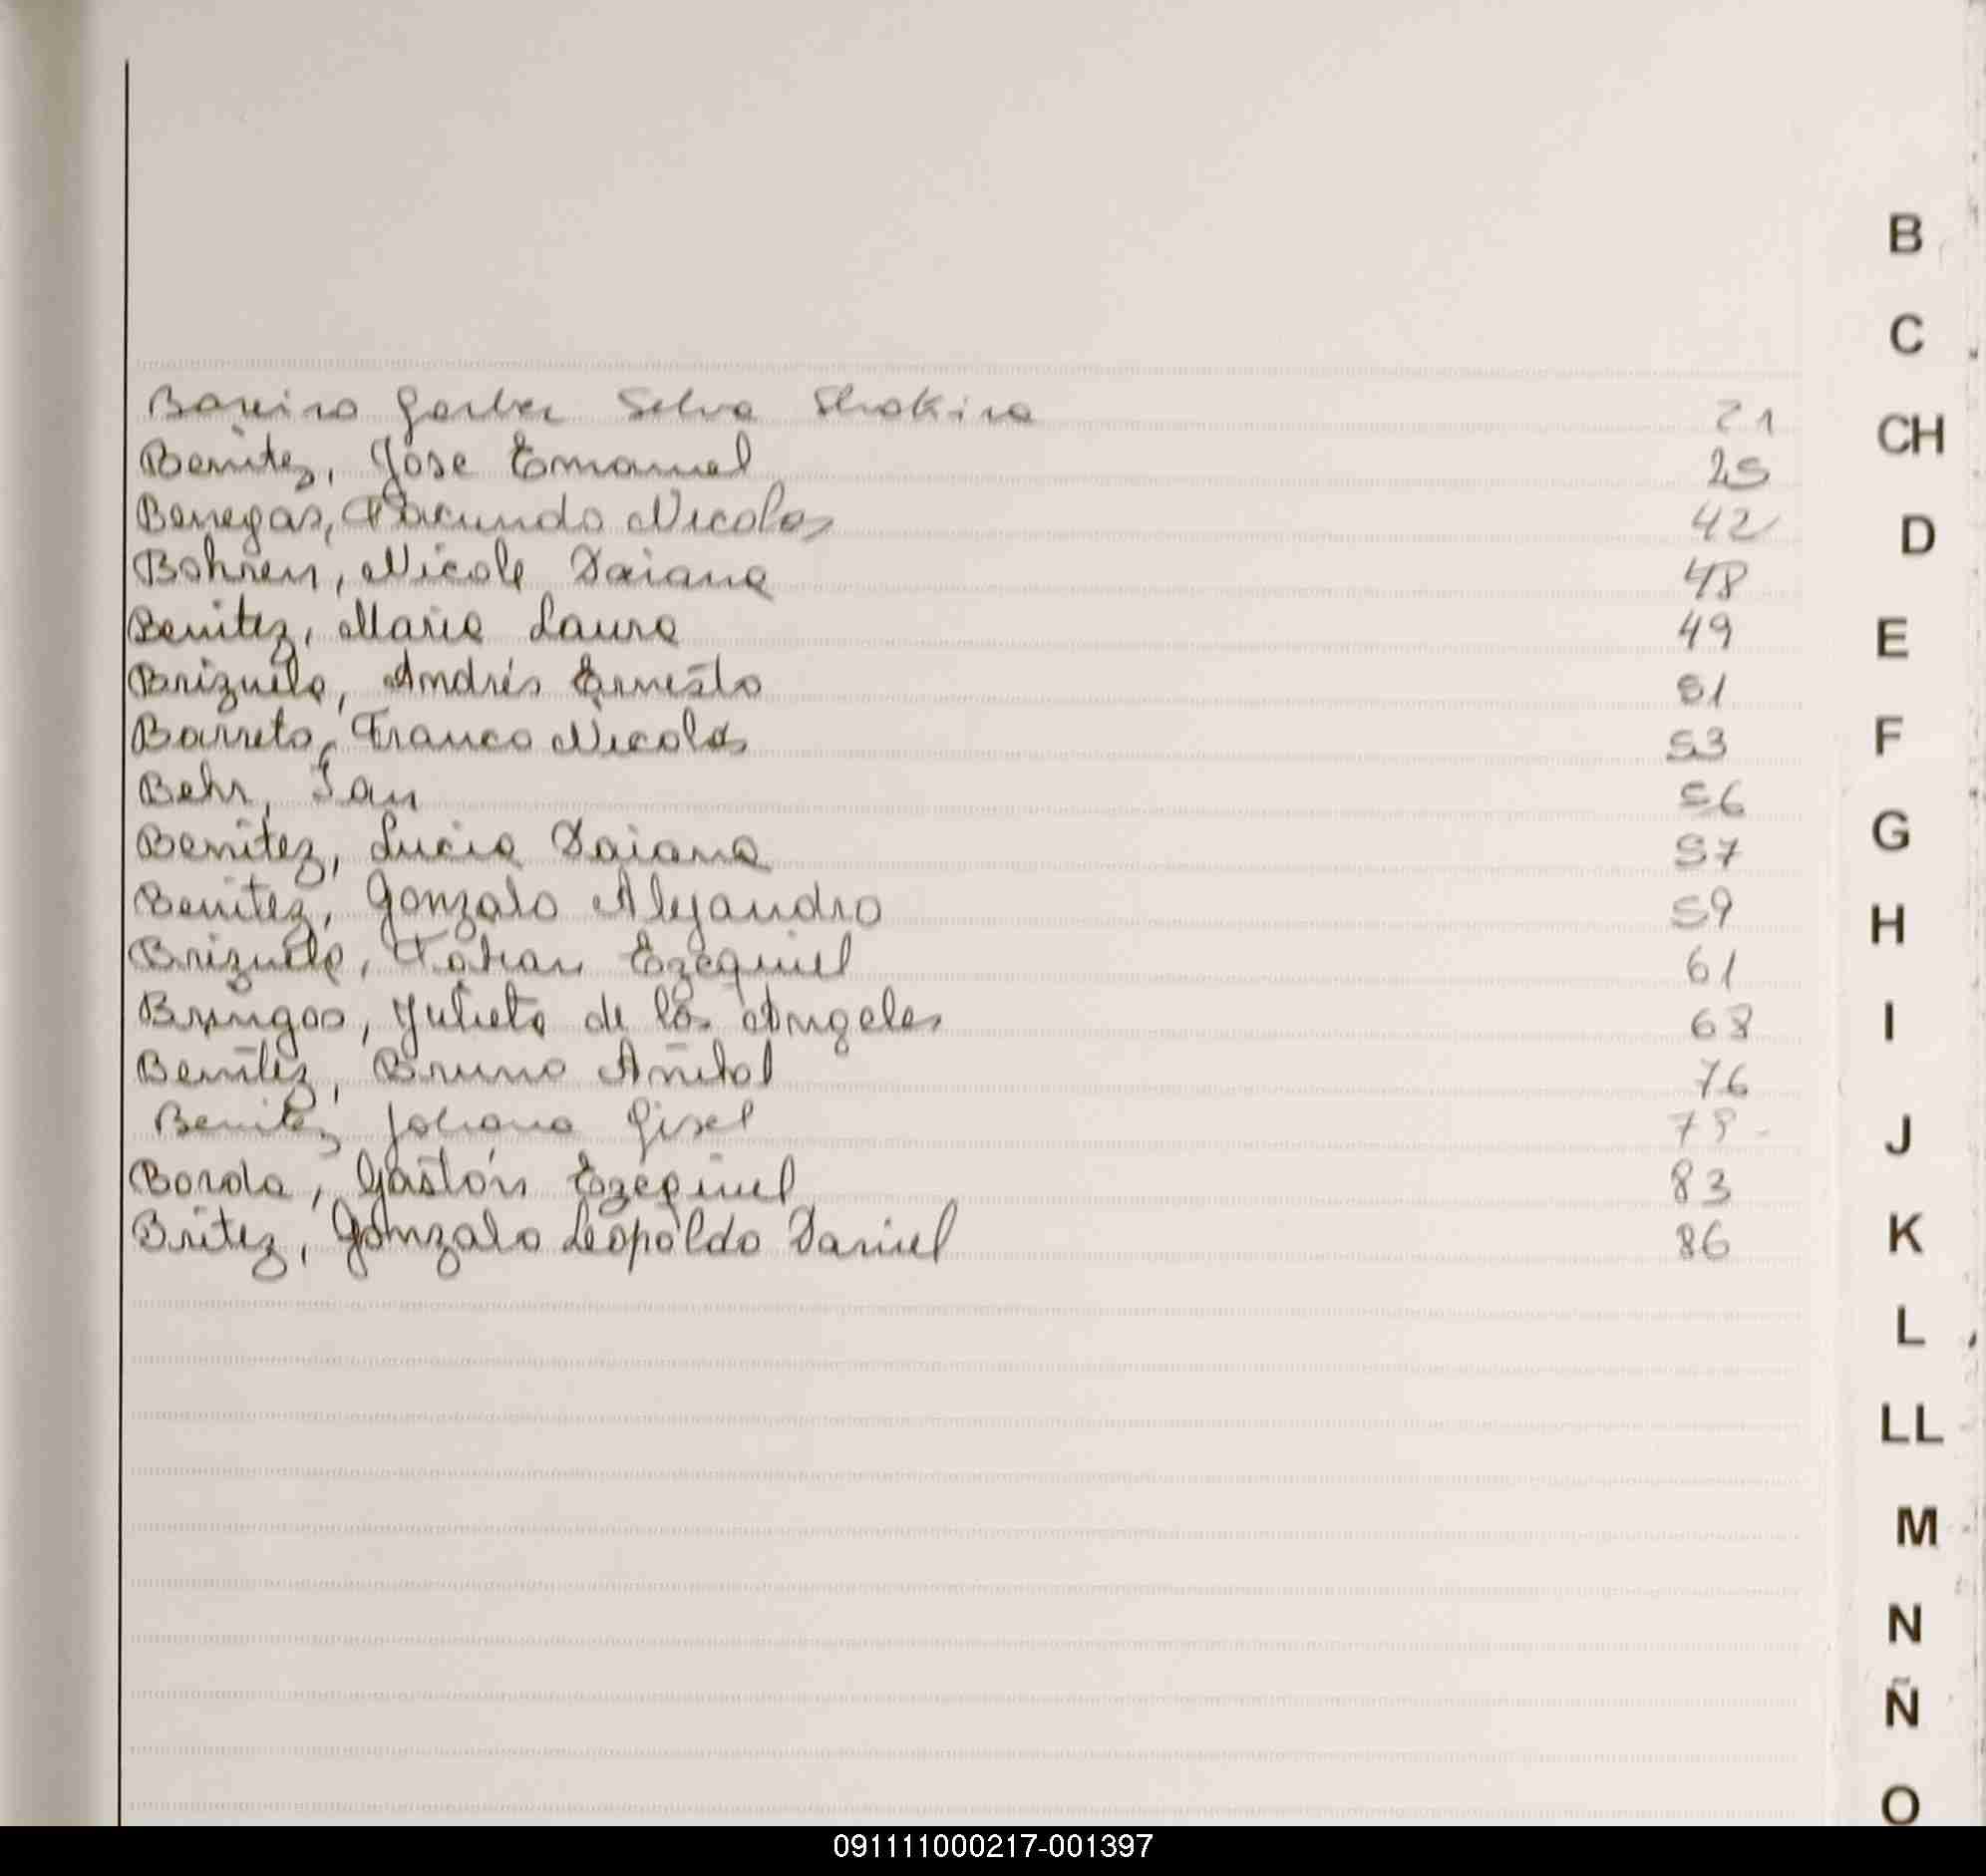 Bareiro Garber Selva Shakira 21
Benitez, Jose Emanuel 25
Benegas, Facundo Nicolas 42
Bohren, Nicole Daiana 48
Benitez, Maria Laura 49
Brizuela, Andrés Ernesto 51
Barreto, Franco Nicolas 53
Behr, Ian 56
Benitez, Lucia Daiana 57
Benitez, Gonzalo Alejandro 59
Brizuela, Ezequiel 61
Julieta de los Angeles 68
Benitez, Bruno Anibal 76
Benitez Johana Gisel 78
Borda, Gastón Ezequiel 83
Britez, Gonzalo Leopoldo Daniel 86
B
C
CH
D
E
F
G
H
I
J
K
L
LL
M
N
Ñ
O
091111000217-001397